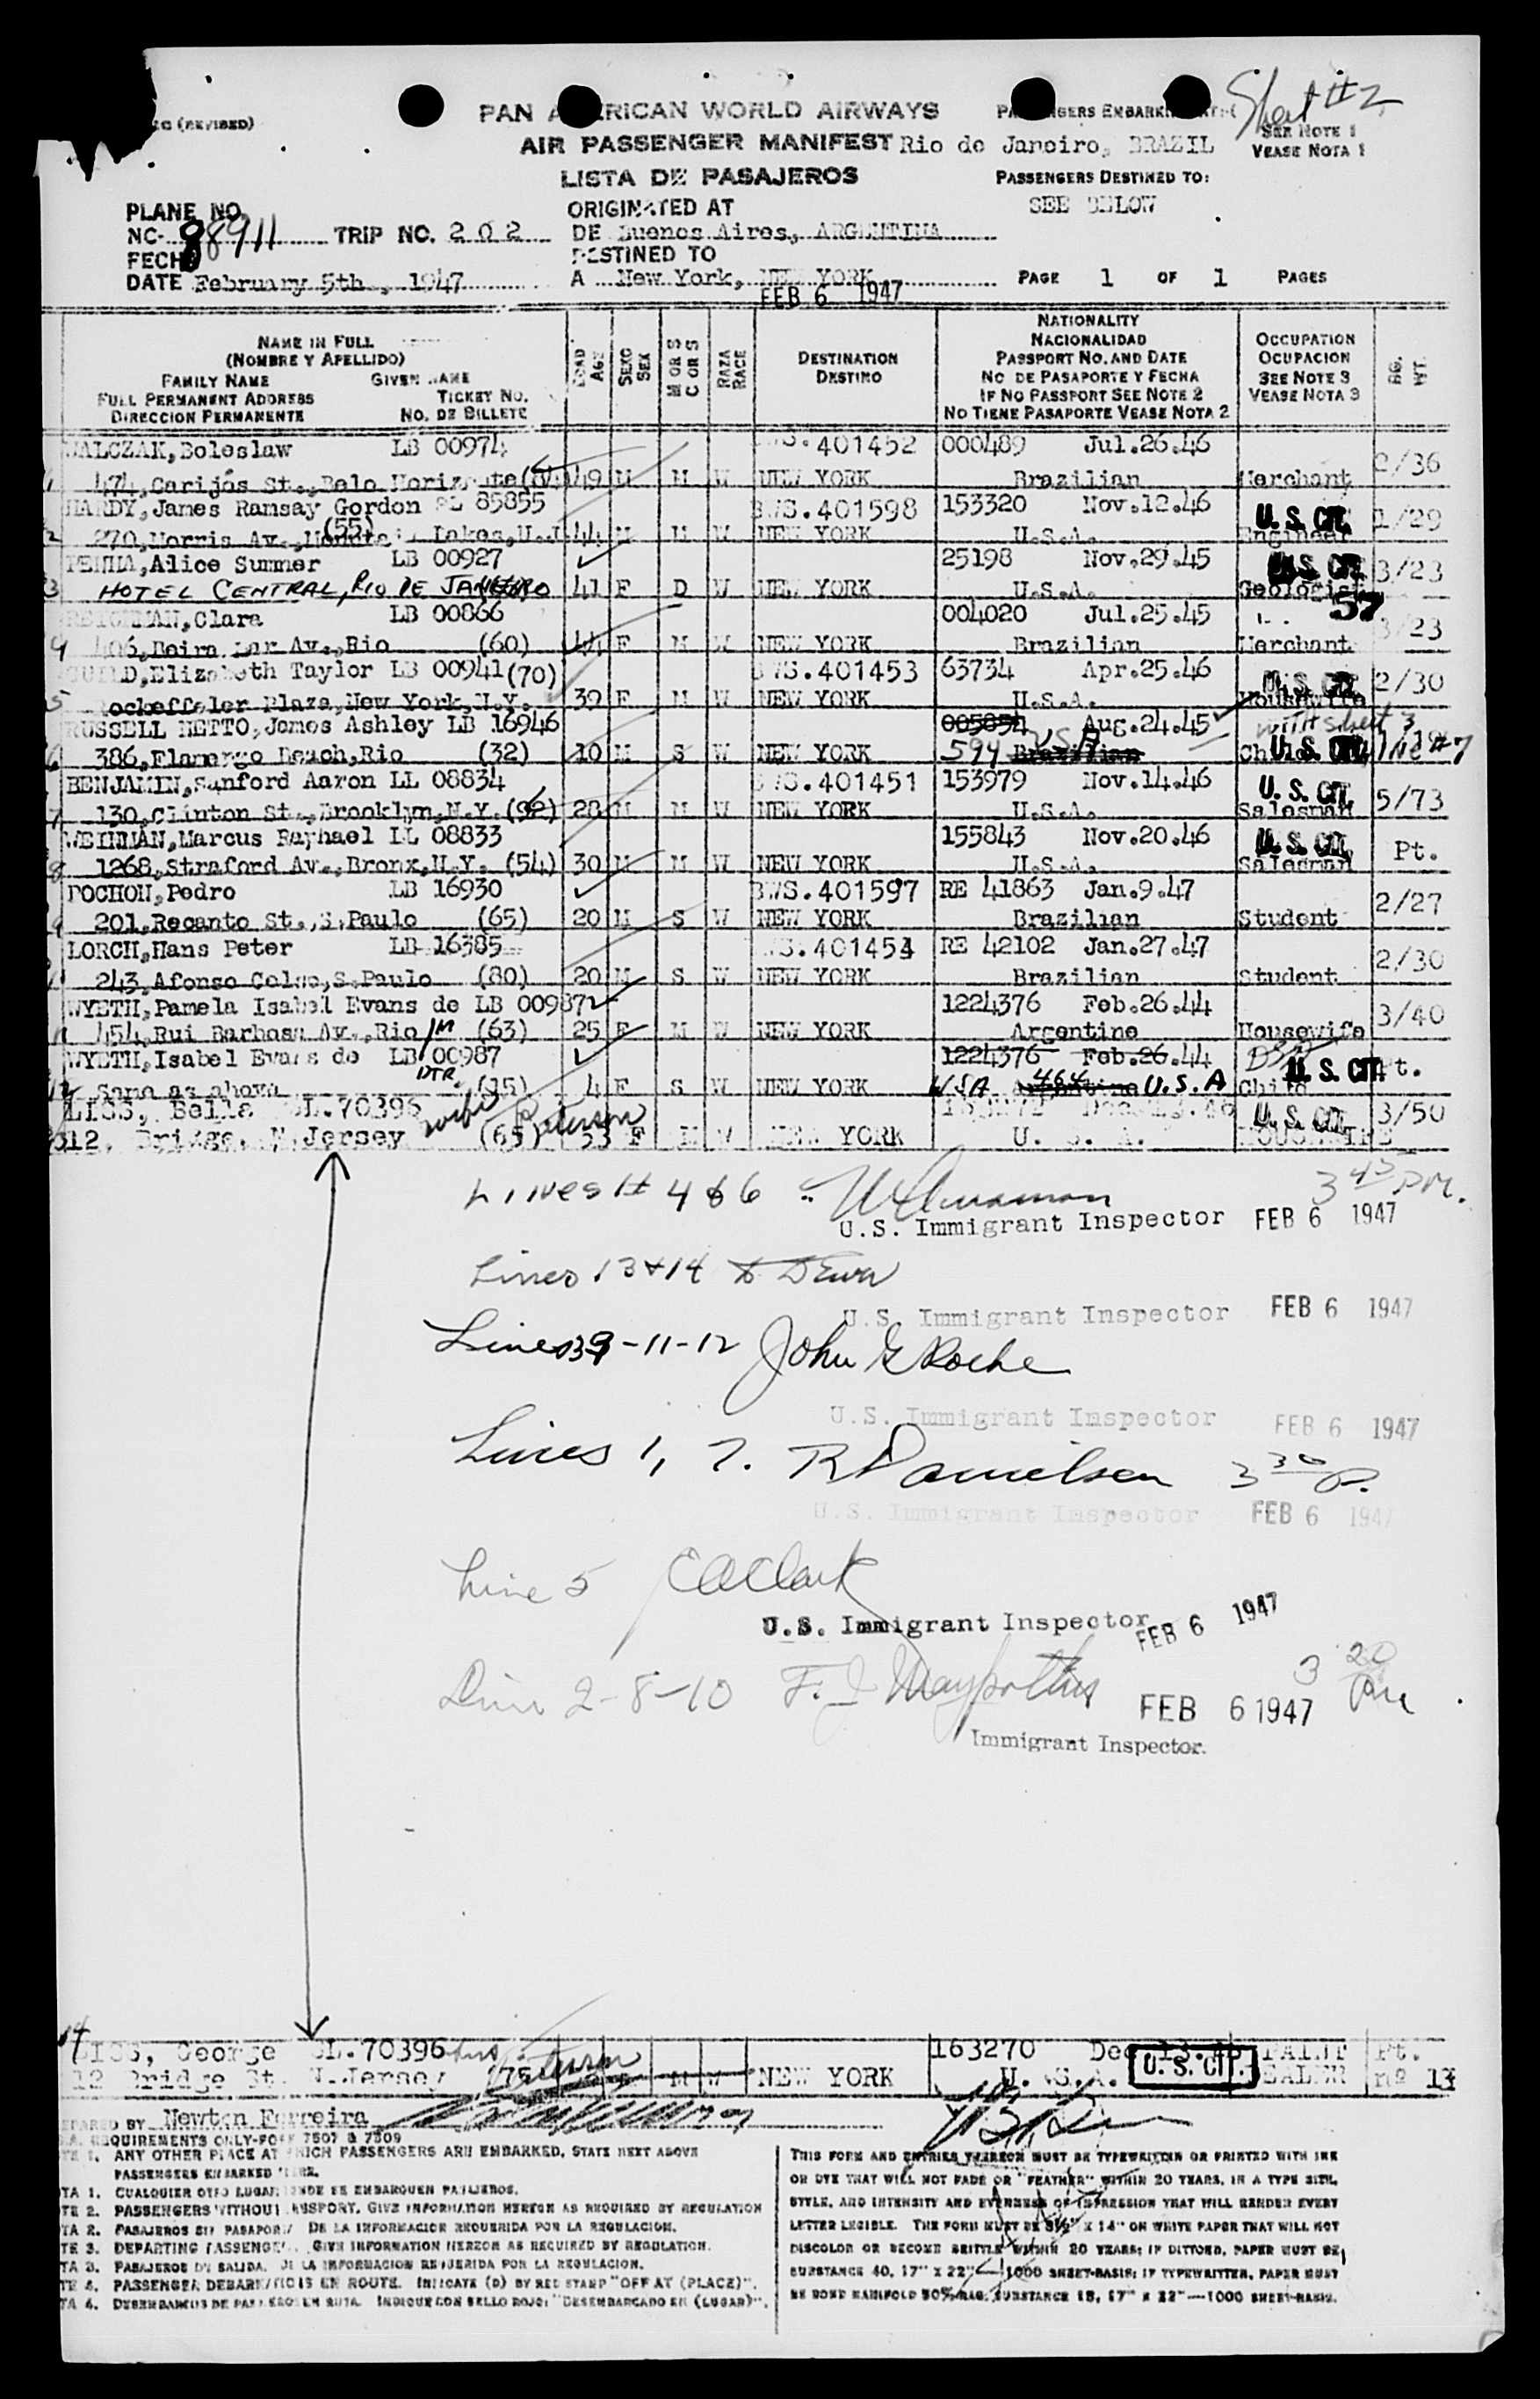 Sheet #2
(REVISED)
PAN AMERICAN WORLD AIRWAYS
AIR PASSENGER MANIFEST Rio de Janeiro, BRAZIL
SEE NOTE 1
VEASE NOTA 1
LISTA DE PASAJEROS
PASSENGERS DESTINED TO:
SEE BELOW
PLANE NO.
NC- 88911 TRIP NO. 202
ORIGINATED AT
DE Buenos Aires, ARGENTINA
FECHA
DATE February 5th, 1947
DESTINED TO
A New York, NEW YORK
FEB 6 1947
PAGE 1 OF 1 PAGES
NAME IN FULL
(NOMBRE Y APELLIDO)
FAMILY NAME GIVEN NAME
FULL PERMANENT ADDRESS TICKET NO.
DIRECCION PERMANENTE NO. DE BILLETE
EDAD AGE
SEXO SEX
M OR S
C OR S
RAZA RACE
DESTINATION
DESTINO
NATIONALITY
NACIONALIDAD
PASSPORT NO. AND DATE
NO DE PASAPORTE Y FECHA
IF NO PASSPORT SEE NOTE 2
NO TIENE PASAPORTE VEASE NOTA 2
OCCUPATION
OCUPACION
SEE NOTE 3
VEASE NOTA 3
BG. WT.
WALCZAK, Boleslaw LB 00974 401452 000489 Jul.26.46
1 474, Carijós St., Belo Horizonte 49 M M W NEW YORK Brazilian Merchant 2/36
HARDY, James Ramsay Gordon 85855 BWS.401598 153320 Nov.12.46 U.S. CIT.
2 270, Morris Av., Lakes, N.J. (55) 44 M M W NEW YORK U.S.A. Engineer 1/29
Alice Summer LB 00927 25198 Nov.29.45 U.S. CIT.
3 HOTEL CENTRAL, RIO DE JANEIRO 41 F D W NEW YORK U.S.A. Geologist 3/23
Clara LB 00866 004020 Jul.25.45 57
4 406, Beira Mar Av., Rio (60) 44 F M W NEW YORK Brazilian Merchant 3/23
GUILD, Elizabeth Taylor LB 00941 (70) BWS.401453 63734 Apr.25.46 U.S. CIT.
5 Rockefeler Plaza, New York, N.Y. 39 F M W NEW YORK U.S.A. Housewife 2/30
RUSSELL NETTO, James Ashley LB 16946 005854 Aug.24.45 with sheet 3
6 386, Flamengo Beach, Rio (32) 10 M S W NEW YORK 594 Brazilian USA Child U.S. CIT. line #7
BENJAMIN, Sanford Aaron LL 08834 BWS.401451 153979 Nov.14.46 U.S. CIT.
7 130, Clinton St., Brooklyn, N.Y. (92) 28 M M W NEW YORK U.S.A. Salesman 5/73
WEINMAN, Marcus Raphael LL 08833 155843 Nov.20.46 U.S. CIT.
8 1268, Straford Av., Bronx, N.Y. (54) 30 M M W NEW YORK U.S.A. Salesman Pt.
POCHON, Pedro LB 16930 BWS.401597 RE 41863 Jan.9.47
9 201, Recanto St., S.Paulo (65) 20 M S W NEW YORK Brazilian Student 2/27
LORCH, Hans Peter LB 16385 401454 RE 42102 Jan.27.47
243, Afonso Celso, S.Paulo (80) 20 M S W NEW YORK Brazilian Student 2/30
WYETH, Pamela Isabel Evans de LB 00987 1224376 Feb.26.44
11 454, Rui Barbosa Av., Rio (63) 25 F M W NEW YORK Argentine Housewife 3/40
WYETH, Isabel Evans de LB 00987 1224376 Feb.26.44 U.S. CIT. Pt.
12 Same as above DTR. (15) 4 F S W NEW YORK USA 464 Argentine U.S.A Child
LISS, Bella 70396 wife Paterson U.S. CIT. 3/50
312, Bridge, N.Jersey (65) 53 F M W NEW YORK U. S. A. HOUSEWIFE
Lines # 4 & 6
U.S. Immigrant Inspector FEB 6 1947
3 45 PM.
Lines 13 & 14
U.S. Immigrant Inspector FEB 6 1947
Lines 3 9-11-12 John G Roche
U.S. Immigrant Inspector FEB 6 1947
Lines 1, 7. R Danielsen 3 30 P.
U.S. Immigrant Inspector FEB 6 1947
Line 5 C A Clark
U.S. Immigrant Inspector FEB 6 1947
Line 2-8-10 F. J. 3 20 PM
FEB 6 1947
Immigrant Inspector.
14
LISS, George 70396 Paterson 163270 Dec 13.46 U.S. CIT. PAINT Pt.
12 Bridge St. N.Jersey M W NEW YORK U. S.A. DEALER nº 13
PREPARED BY Newton Ferreira
REQUIREMENTS ONLY-FORM 7507 & 7509
NOTE 1. ANY OTHER PLACE AT WHICH PASSENGERS ARE EMBARKED, STATE NEXT ABOVE
PASSENGERS EMBARKED HERE.
NOTA 1. CUALQUIER OTRO LUGAR DONDE SE EMBARQUEN PASAJEROS.
NOTE 2. PASSENGERS WITHOUT PASSPORT. GIVE INFORMATION HEREON AS REQUIRED BY REGULATION
NOTA 2. PASAJEROS SIN PASAPORTE DE LA INFORMACION REQUERIDA POR LA REGULACION.
NOTE 3. DEPARTING PASSENGERS. GIVE INFORMATION HEREON AS REQUIRED BY REGULATION.
NOTA 3. PASAJEROS DE SALIDA. DE LA INFORMACION REQUERIDA POR LA REGULACION.
NOTE 4. PASSENGER DEBARKATIONS EN ROUTE. INDICATE (D) BY RED STAMP "OFF AT (PLACE)".
NOTA 4. DESEMBARCOS DE PASAJEROS EN RUTA. INDIQUE CON SELLO ROJO: "DESEMBARCADO EN (LUGAR)".
THIS FORM AND ENTRIES THEREON MUST BE TYPEWRITTEN OR PRINTED WITH INK
OR DYE THAT WILL NOT FADE OR "FEATHER" WITHIN 20 YEARS, IN A TYPE SIZE,
STYLE, AND INTENSITY AND EVENNESS OF IMPRESSION THAT WILL RENDER EVERY
LETTER LEGIBLE. THE FORM MUST BE 8½" X 14" ON WHITE PAPER THAT WILL NOT
DISCOLOR OR BECOME BRITTLE WITHIN 20 YEARS; IF DITTOED, PAPER MUST BE
SUBSTANCE 40, 17" X 22"—1000 SHEET-BASIS; IF TYPEWRITTEN, PAPER MUST
BE BOND MANIFOLD 50% RAG, SUBSTANCE 18, 17" X 22"—1000 SHEET-BASIS.